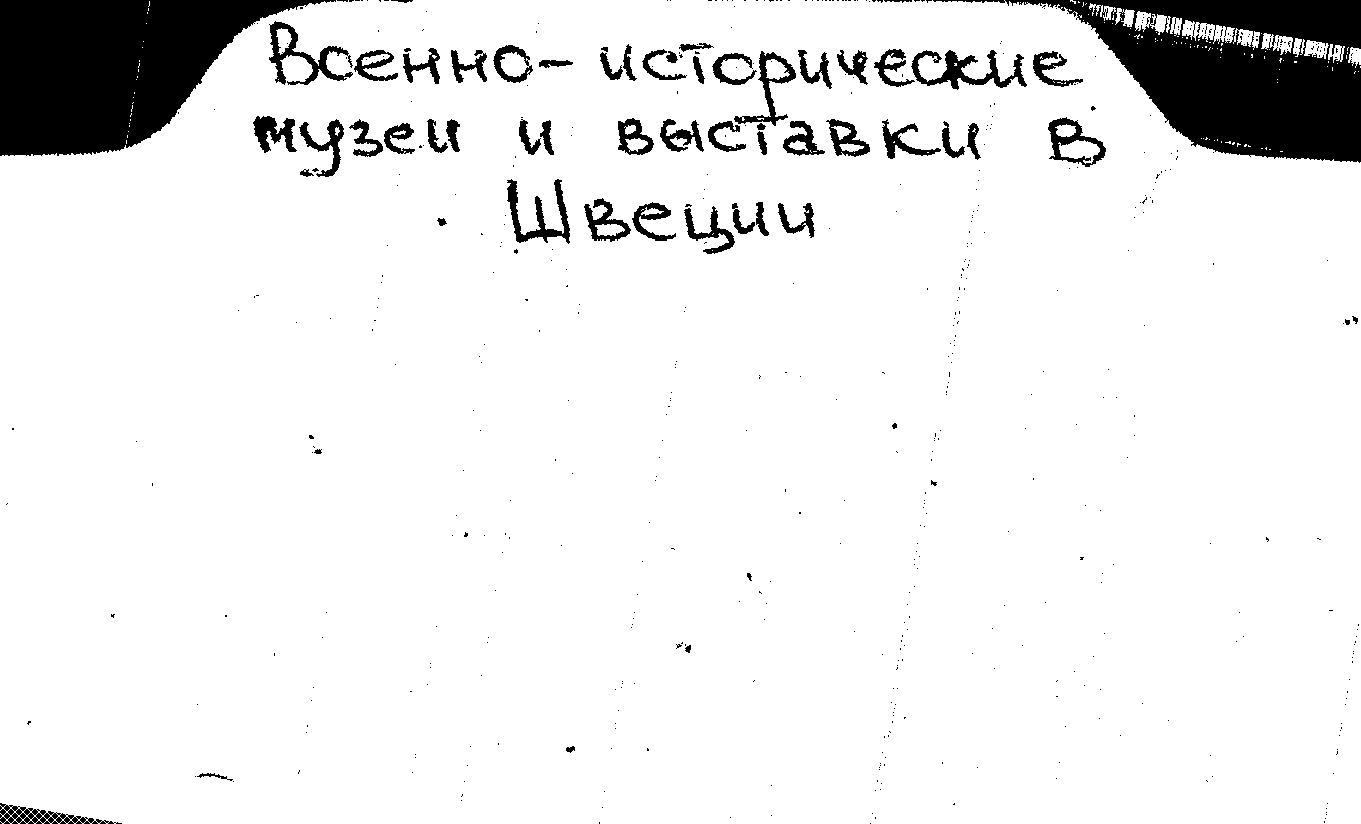 Военно-исторические
музеи и выставки в
Швеции